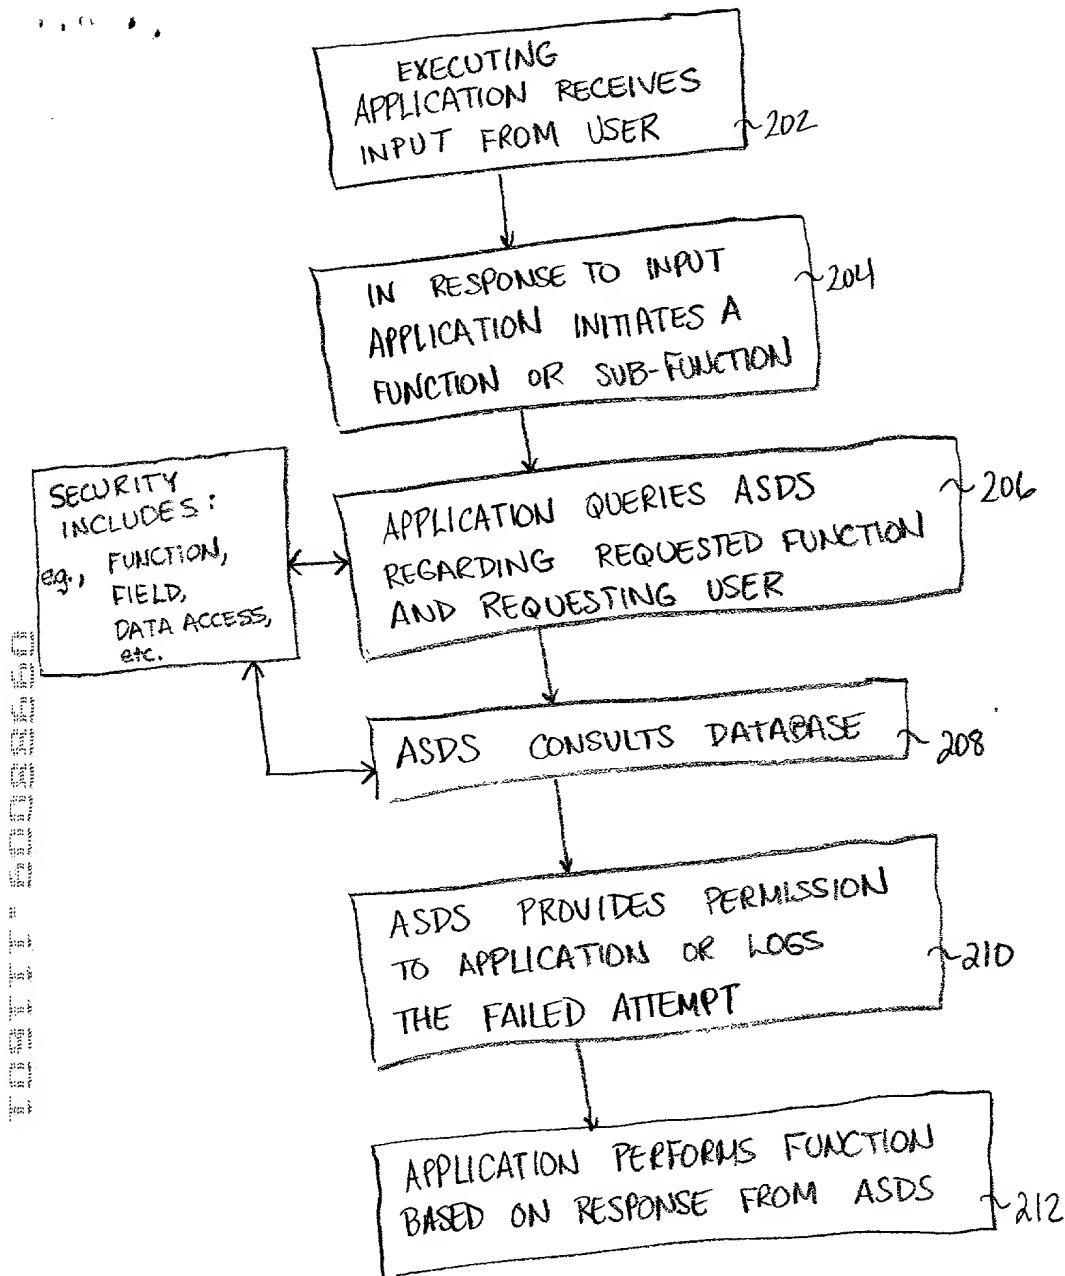 EXECUTING
APPLICATION RECEIVES
INPUT FROM USER
202
IN RESPONSE TO INPUT
APPLICATION INITIATES A
FUNCTION OR SUB-FUNCTION
204
SECURITY
INCLUDES:
e.g., FUNCTION,
FIELD,
DATA ACCESS,
etc.
APPLICATION QUERIES ASDS
REGARDING REQUESTED FUNCTION
AND REQUESTING USER
206
ASDS CONSULTS DATABASE
208
ASDS PROVIDES PERMISSION
TO APPLICATION OR LOGS
THE FAILED ATTEMPT
210
APPLICATION PERFORMS FUNCTION
BASED ON RESPONSE FROM ASDS
212